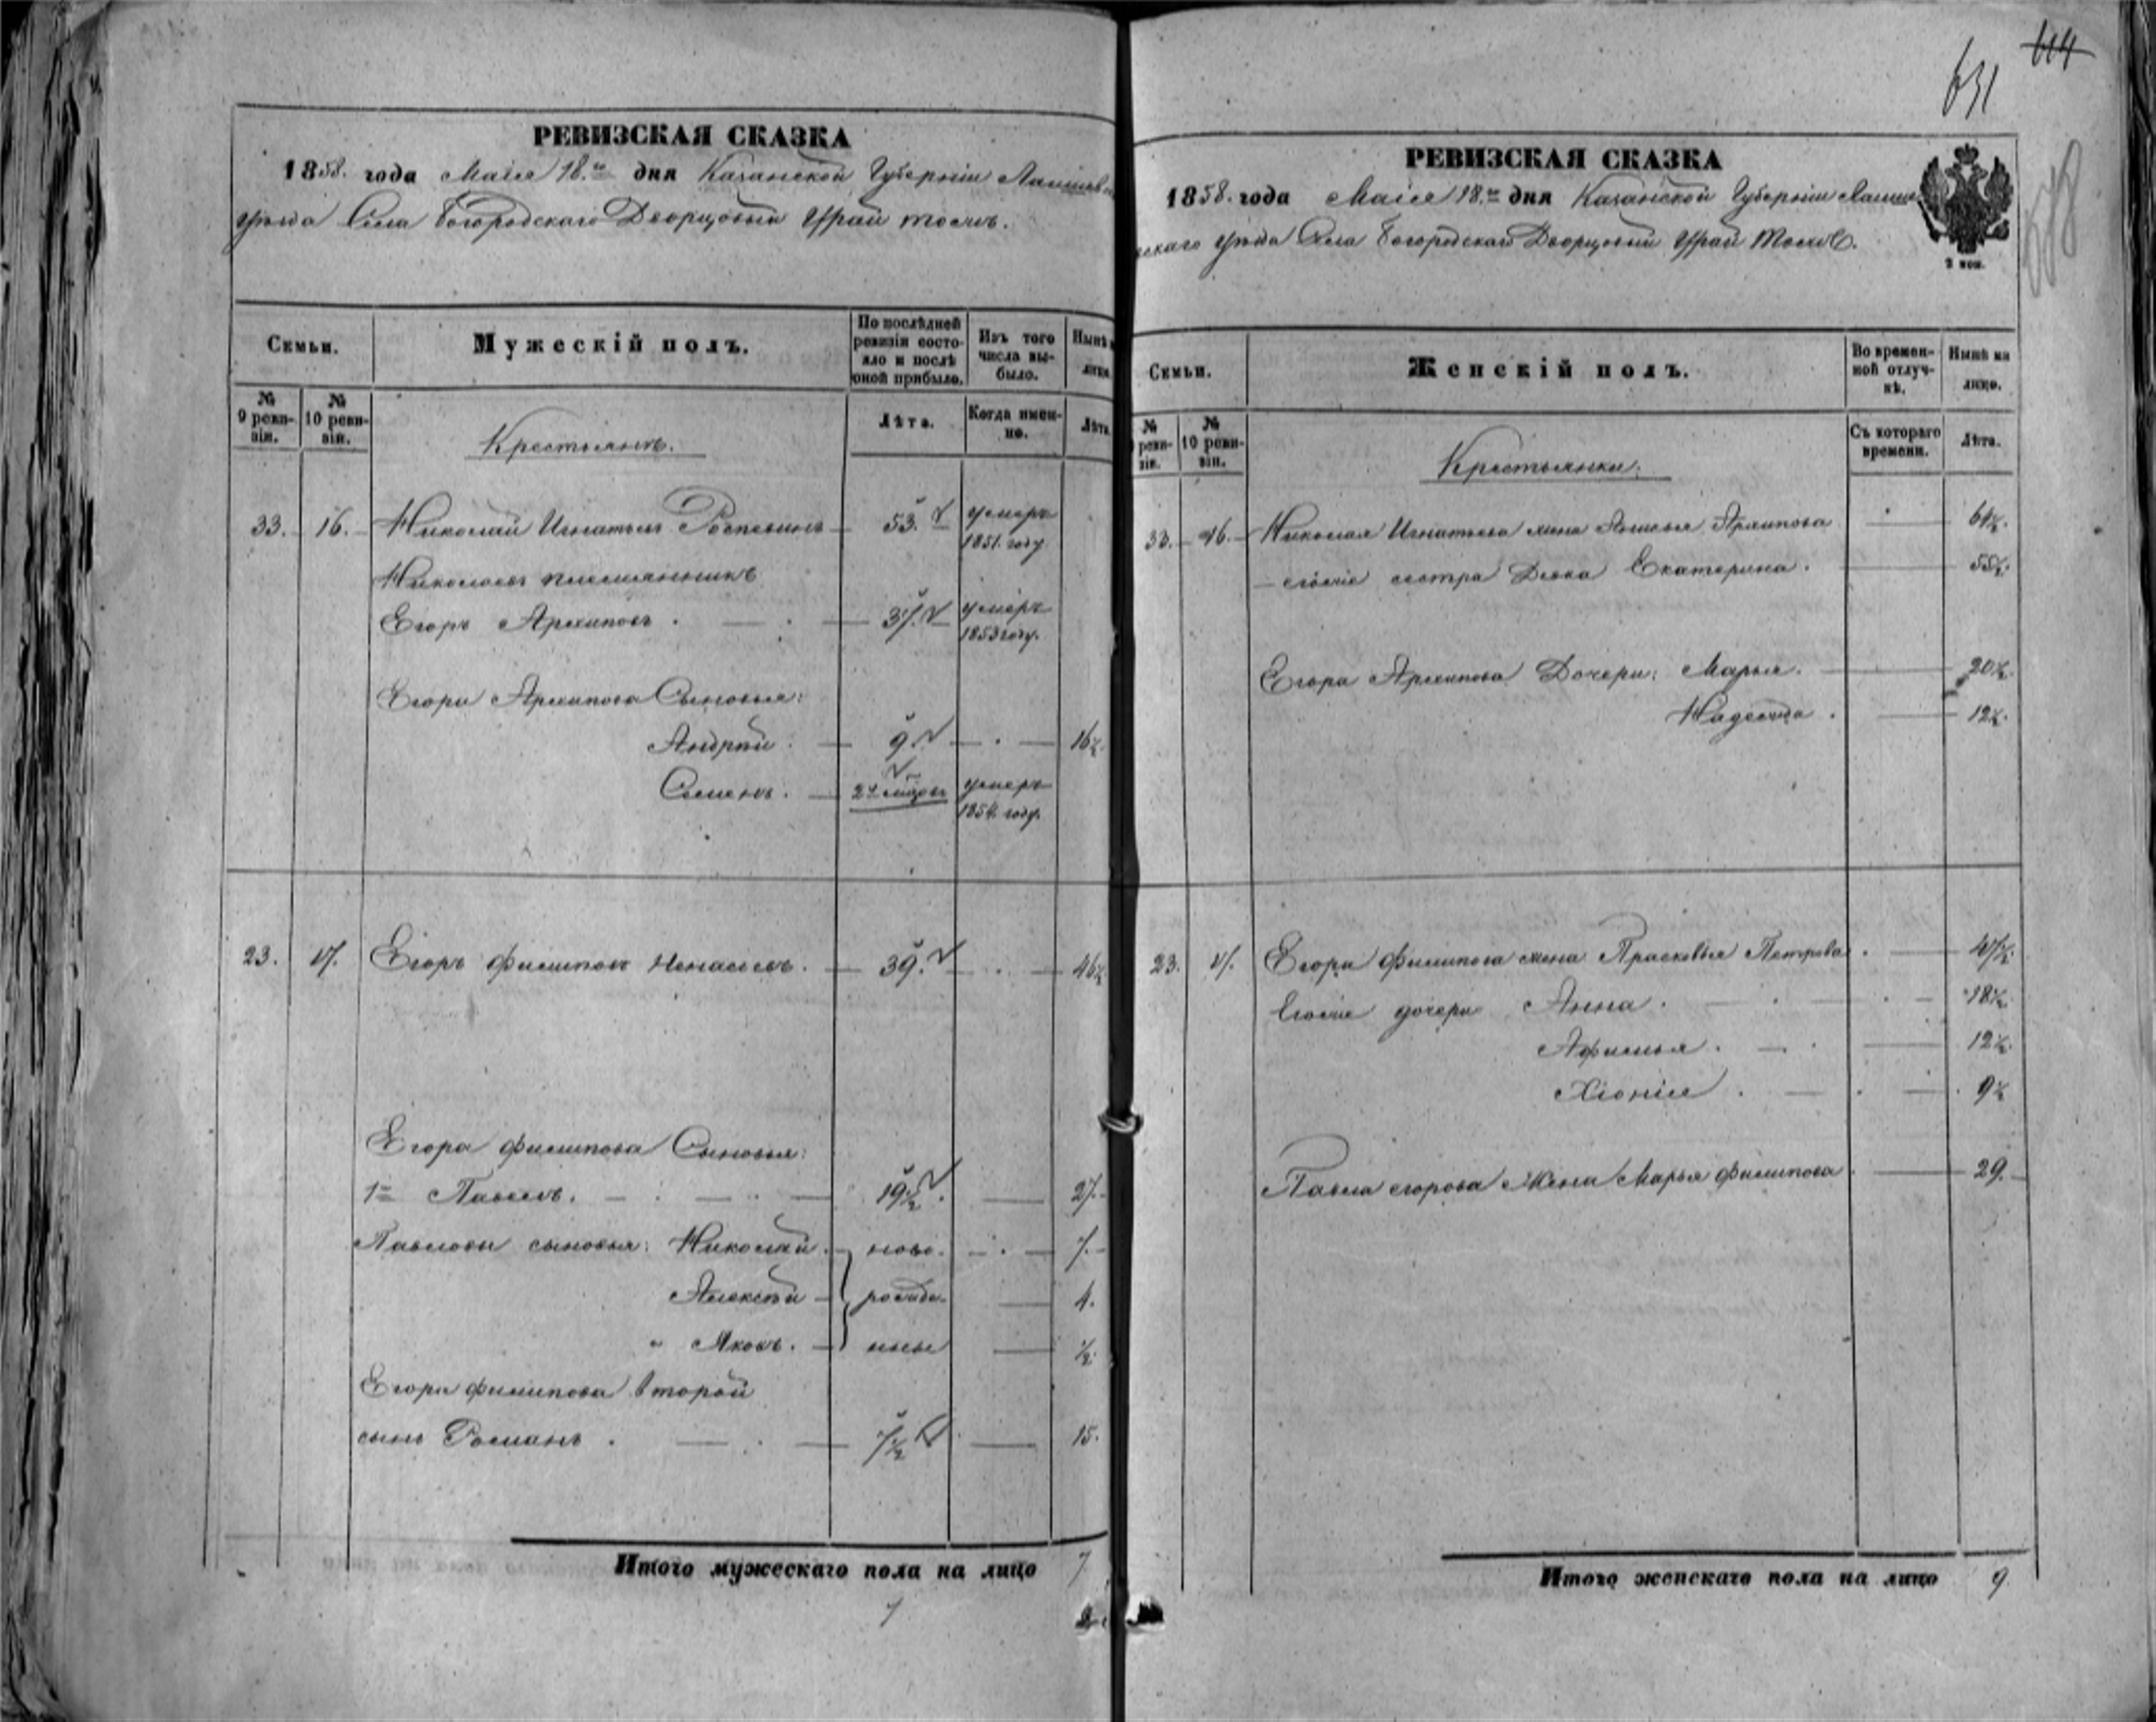 631 614
РЕВИЗСКАЯ СКАЗКА
1858. года Маія 18.го дня Казанской Губерніи
уѣзда Села Богородскаго Дворцовый Урай тожъ.
Семьи.
Мужескій полъ.
По послѣдней ревизіи состояло и послѣ оной прибыло.
Изъ того числа выбыло.
Нынѣ
лица
№ 9 ревизіи.
№ 10 ревизіи.
Крестьяне.
Лѣта.
Когда именно.
Лѣта
33. 16. Николай Игнатьевъ 53. умеръ 1851. году
Николаевъ племянникъ
Егоръ Архиповъ. 37. умеръ 1853 году.
Егора Архипова Сыновья:
Андрей. 9. 16½.
Семенъ. умеръ 1854. году.
23. 17. Егоръ Филиповъ 39. 46½
Егора Филипова Сыновья:
1й Павелъ. 19½. 27.
Павловы сыновья: Николай. ново- 7.
Алексѣй рожде- 4.
Яковъ. нные ½.
Егора Филипова второй
сынъ Романъ. 7½ 15.
Итого мужескаго пола на лицо 7
7
РЕВИЗСКАЯ СКАЗКА
1858. года Маія 18.го дня Казанской Губерніи Лаише
вскаго уѣзда Села Богородскаго Дворцовый Урай тожъ.
2 коп.
Семьи.
Женскій полъ.
Во временной отлучкѣ.
Нынѣ на лицо.
№ ревизіи.
№ 10 ревизіи.
Крестьянки.
Съ котораго времени.
Лѣта.
33. 16. Николая Игнатьева жена Архипова 61½.
его же сестра Девка Екатерина. 55½.
Егора Архипова Дочери: Марья. 20½.
Надежда. 12½.
23. 17. Егора Филипова жена Прасковья Петрова. 47½.
Его же дочери Анна. 18½.
Афимья. 12½.
Хіонія. 9½
Павла егорова Жена Марья Филипова 29.
Итого женскаго пола на лицо 9.